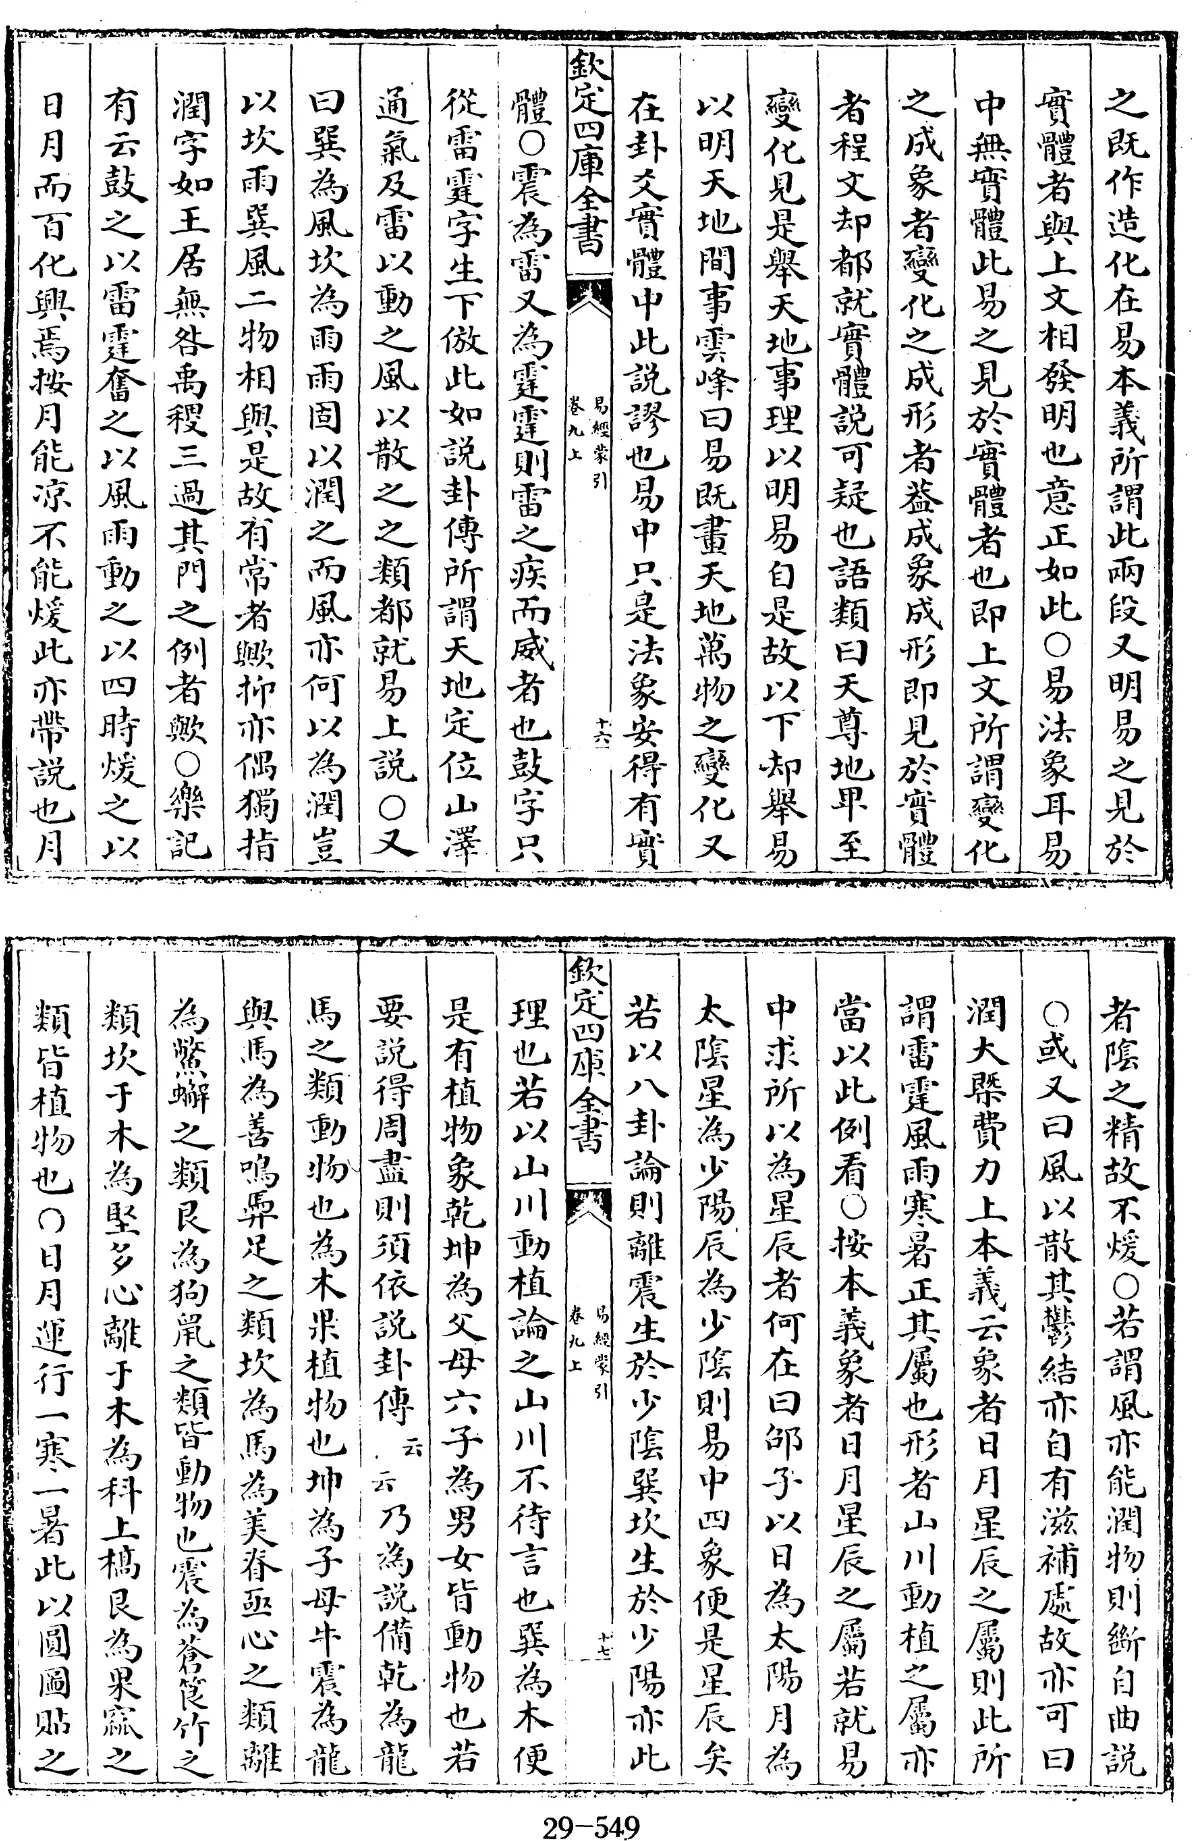 之既作造化在易本義所謂此兩段又明易之見於
實體者與上文相發明也意正如此○易法象耳易
中無實體此易之見於實體者也即上文所謂變化
之成象者變化之成形者葢成象成形即見於實體
者程文却都就實體說可疑也語類曰天尊地卑至
變化見是舉天地事理以明易自是故以下却舉易
以明天地間事雲峰曰易既畫天地萬物之變化又
在卦爻實體中此說謬也易中只是法象安得有實
欽定四庫全書
易經蒙引
卷九上
十六
體○震為雷又為霆霆則雷之疾而威者也鼓字只
從雷霆字生下倣此如說卦傳所謂天地定位山澤
通氣及雷以動之風以散之之類都就易上說○又
曰巽為風坎為雨雨固以潤之而風亦何以為潤豈
以坎雨巽風二物相與是故有常者歟抑亦偶獨指
潤字如王居無咎禹稷三過其門之例者歟○樂記
有云鼓之以雷霆奮之以風雨動之以四時煖之以
日月而百化興焉按月能凉不能煖此亦帶說也月
者陰之精故不煖○若謂風亦能潤物則斷自曲說
○或又曰風以散其鬱結亦自有滋補處故亦可曰
潤大槩費力上本義云象者日月星辰之屬則此所
謂雷霆風雨寒暑正其屬也形者山川動植之屬亦
當以此例看○按本義象者日月星辰之屬若就易
中求所以為星辰者何在曰邵子以日為太陽月為
太隂星為少陽辰為少隂則易中四象便是星辰矣
若以八卦論則離震生於少陰巽坎生於少陽亦此
欽定四庫全書
易經蒙引
卷九上
十七
理也若以山川動植論之山川不待言也巽為木便
是有植物象乾坤為父母六子為男女皆動物也若
要說得周盡則須依說卦傳云云乃為說備乾為龍
馬之類動物也為木果植物也坤為子母牛震為龍
與馬為善鳴馵足之類坎為馬為美脊亟心之類離
為鱉蠏之類艮為狗鼠之類皆動物也震為蒼筤竹之
類坎于木為堅多心離于木為科上槁艮為果蓏之
類皆植物也○日月運行一寒一暑此以圓圖貼之
29-549